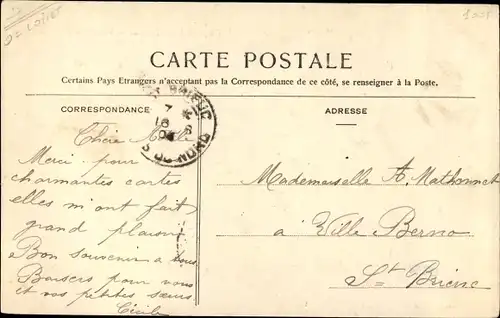 CARTE POSTALE
Certains Pays Etrangers n'acceptant pas la Correspondance de ce côté, se renseigner à la Poste.
CORRESPONDANCE
ADRESSE
ST BRIEUC
7
18 8
DU NORD
Chère
Merci pour
charmantes cartes
elles m'ont fait
grand plaisir
Bon souvenir à vous
Baisers pour vous
et vos petites sœurs
Cécile
Mademoiselle A. Mathonnet
à Ville Berno
St Brieuc